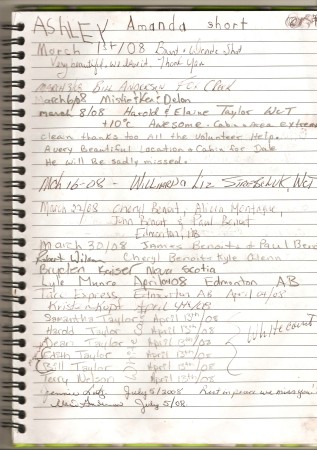 ASHLEY Amanda short
March 1st/08 Brent & Wende Short
Very beautiful, we love it. Thank You
March 3/08 Bill Anderson F.C. Creek
March 6/08 Mishe Ken & Delon
March 8/08 Harold & Elaine Taylor WCT
+10°c Awesome. Cabin & area extreme
clean thanks to All the Volunteer Help.
A very Beautiful Location & Cabin for Dale
He Will Be Sadly missed.
Mch 16-08 - William & Liz WCT
March 22/08 Cheryl Benoit, Alicia Montague,
John Benoit & Paul Benoit
Edmonton, AB
March 30/08 James Benoit & Paul Beno
Robert Wilson Cheryl Benoit & Kyle Glenn
Brycten Keiser Nova Scotia
Lyle Munro April 04/08 Edmonton AB
Express Edmonton AB April 04/08
April 4/08
Samantha Taylor April 13th/08
Harold Taylor April 13th/08
Dean Taylor April 13th/08 Whitecourt
Cash Taylor April 13th/08
Bill Taylor April 13th/08
Terry Nelson April 13th/08
July 5/2008 Rest in peace we miss you!
July 5/08